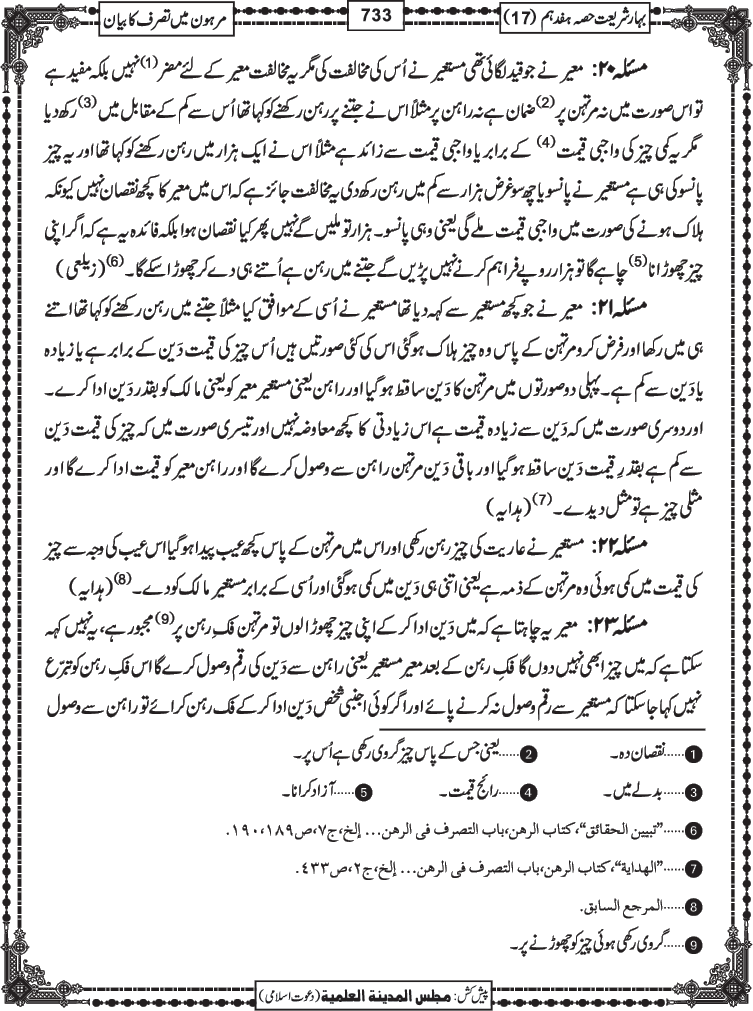 بہار شریعت حصہ ہفدہم (17)
733
مرہون میں تصرف کا بیان
مسئلہ ۲۰: معیر نے جو قید لگائی تھی مستعیر نے اُس کی مخالفت کی مگر یہ مخالفت معیر کے لئے مضر(1) نہیں بلکہ مفید ہے
تو اس صورت میں نہ مرتہن پر(2) ضمان ہے نہ راہن پر مثلاً اس نے جتنے پر رہن رکھنے کو کہا تھا اُس سے کم کے مقابل میں(3) رکھ دیا
مگر یہ کمی چیز کی واجبی قیمت(4) کے برابر یا واجبی قیمت سے زائد ہے مثلاً اس نے ایک ہزار میں رہن رکھنے کو کہا تھا اور یہ چیز
پانسو کی ہی ہے مستعیر نے پانسو یا چھ سو غرض ہزار سے کم میں رہن رکھ دی یہ مخالفت جائز ہے کہ اس میں معیر کا کچھ نقصان نہیں کیونکہ
ہلاک ہونے کی صورت میں واجبی قیمت ملے گی یعنی وہی پانسو۔ ہزار تو ملیں گے نہیں پھر کیا نقصان ہوا بلکہ فائدہ یہ ہے کہ اگر اپنی
چیز چھوڑانا(5) چاہے گا تو ہزار روپے فراہم کرنے نہیں پڑیں گے جتنے میں رہن ہے اُتنے ہی دے کر چھوڑا سکے گا۔(6) (زیلعی)
مسئلہ ۲۱: معیر نے جو کچھ مستعیر سے کہہ دیا تھا مستعیر نے اُسی کے موافق کیا مثلاً جتنے میں رہن رکھنے کو کہا تھا اتنے
ہی میں رکھا اور فرض کرو مرتہن کے پاس وہ چیز ہلاک ہوگئی اس کی کئی صورتیں ہیں اُس چیز کی قیمت دَین کے برابر ہے یا زیادہ
یا دَین سے کم ہے۔ پہلی دو صورتوں میں مرتہن کا دَین ساقط ہوگیا اور راہن یعنی مستعیر معیر کو یعنی مالک کو بقدرِ دَین ادا کرے۔
اور دوسری صورت میں کہ دَین سے زیادہ قیمت ہے اس زیادتی کا کچھ معاوضہ نہیں اور تیسری صورت میں کہ چیز کی قیمت دَین
سے کم ہے بقدرِ قیمت دَین ساقط ہوگیا اور باقی دَین مرتہن راہن سے وصول کرے گا اور راہن معیر کو قیمت ادا کرے گا اور
مثلی چیز ہے تو مثل دیدے۔(7) (ہدایہ)
مسئلہ ۲۲: مستعیر نے عاریت کی چیز رہن رکھی اور اس میں مرتہن کے پاس کچھ عیب پیدا ہوگیا اس عیب کی وجہ سے چیز
کی قیمت میں کمی ہوئی وہ مرتہن کے ذمہ ہے یعنی اتنی ہی دَین میں کمی ہوگئی اور اُسی کے برابر مستعیر مالک کو دے۔(8) (ہدایہ)
مسئلہ ۲۳: معیر یہ چاہتا ہے کہ میں دَین ادا کر کے اپنی چیز چھوڑا لوں تو مرتہن فکِ رہن پر(9) مجبور ہے، یہ نہیں کہہ
سکتا ہے کہ میں چیز ابھی نہیں دوں گا فکِ رہن کے بعد معیر مستعیر یعنی راہن سے دَین کی رقم وصول کرے گا اس فکِ رہن کو تبرّع
نہیں کہا جاسکتا کہ مستعیر سے رقم وصول نہ کرنے پائے اور اگر کوئی اجنبی شخص دَین ادا کر کے فک رہن کرائے تو راہن سے وصول
1......نقصان دہ۔ 2......یعنی جس کے پاس چیز گروی رکھی ہے اُس پر۔
3......بدلے میں۔ 4......رائج قیمت۔ 5......آزاد کرانا۔
6......”تبيين الحقائق“، كتاب الرهن، باب التصرف فى الرهن... إلخ، ج٧، ص١٨٩، ١٩٠.
7......”الهداية“، كتاب الرهن، باب التصرف فى الرهن... إلخ، ج٢، ص٤٣٣.
8......المرجع السابق.
9......گروی رکھی ہوئی چیز کو چھوڑنے پر۔
پیش کش: مجلس المدينة العلمية (دعوت اسلامی)